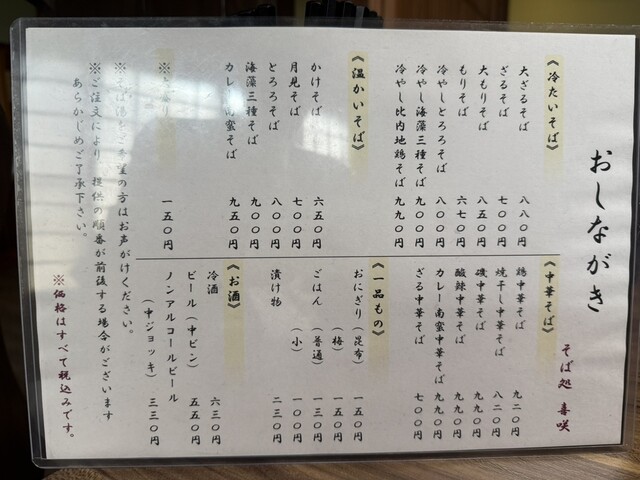 おしながき
そば処 喜咲
《冷たいそば》
大ざるそば 八八〇円
ざるそば 七〇〇円
大もりそば 八五〇円
もりそば 六七〇円
冷やしとろろそば 八〇〇円
冷やし海藻三種そば 九〇〇円
冷やし比内地鶏そば 九九〇円
《温かいそば》
かけそば 六五〇円
月見そば 七〇〇円
とろろそば 八〇〇円
海藻三種そば 九〇〇円
カレー南蛮そば 九五〇円
一五〇円
《中華そば》
鶏中華そば 九二〇円
焼干し中華そば 八二〇円
磯中華そば 九九〇円
酸辣中華そば 九九〇円
カレー南蛮中華そば 九九〇円
ざる中華そば 七〇〇円
《一品もの》
おにぎり(昆布) 一五〇円
(梅) 一五〇円
ごはん (普通) 一三〇円
(小) 一〇〇円
漬け物 二三〇円
《お酒》
冷酒 六三〇円
ビール(中ビン) 五五〇円
ノンアルコールビール
(中ジョッキ) 三三〇円
※そば湯をご希望の方はお声がけください。
※ご注文により、提供の順番が前後する場合がございます
あらかじめご了承下さい。
※価格はすべて税込みです。